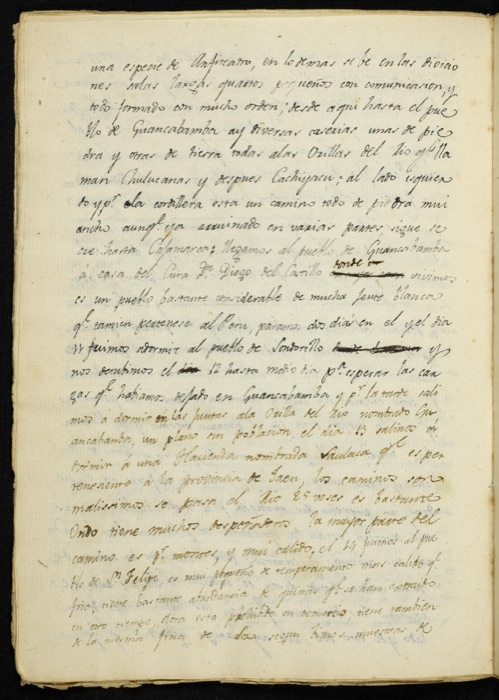 una especie de Anfiteatro, en lo demas se be en las divicio
nes salas largas quartos pequeños con comunicacion, y
todo formado con mucho orden; desde aqui hasta el pue
blo de Guancabamba ay diversas caserias unas de pie
dra y otras de tierra todas a las Orillas del Rio q.e lla
man Chulucanas y despues Cachiyacu; al lado esquier
do y p.r la cordillera esta un camino todo de piedra mui
ancho aunq.e ya arruinado en varias partes, sigue se
cree hasta Cajamarca; llegamos al pueblo de Guancabamba
a casa del Cura D.n Diego del Castillo donde vivimos
es un pueblo bastante considerable de mucha jente blanca
q.e tamien pertenese al Peru, paramos dos dias en el y el dia
11 fuimos a dormir al pueblo de Sondorillo y
nos detubimos el 12 hasta medio dia p.a esperar las car
gas q.e habiamos dejado en Guancabamba y p.r la tarde sali
mos a dormir en las juntas a la Orilla del Rio nombrado Gu
ancabamba, un plano sin poblacion el dia 13 salimos a
dormir á una Hacienda nombrada Sauluca q.e es per
teneciente à la provincia de Jaen, los caminos son
malissimos se pasa el Rio 28 veses es bastante
Ondo tiene muchos despeñaderos la mayor parte del
camino es p.r montes, y mui calido, el 14 fuimos al pue
blo de S.n Felipe es mui pequeño de temperamento mas calido q.e
frio, tiene bastante abundancia de quinas q.e se han extraido
en otro tiempo, ahora esta prohibido su comercio, tiene tambien
de la misma fina de segun bimos muestras de